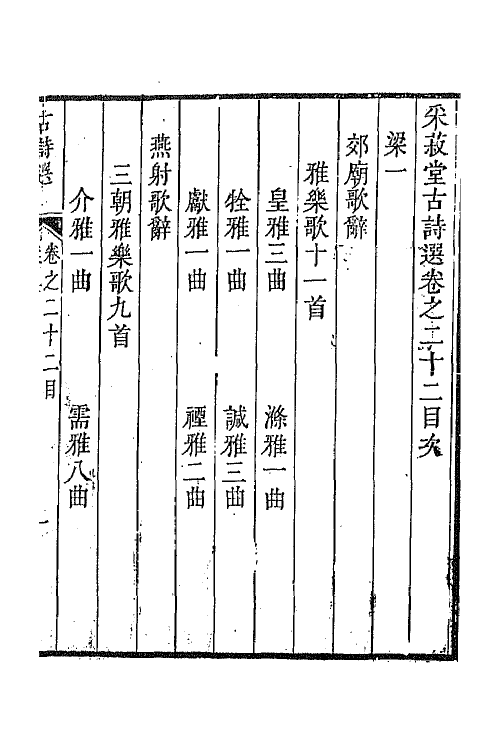 采菽堂古詩選卷之二十二目次
梁一
郊廟歌辭
雅樂歌十一首
皇雅三曲 滌雅一曲
牷雅一曲 諴雅三曲
獻雅一曲 禋雅二曲
燕射歌辭
三朝雅樂歌九首
介雅一曲 需雅八曲
古詩選 卷之二十二目 一